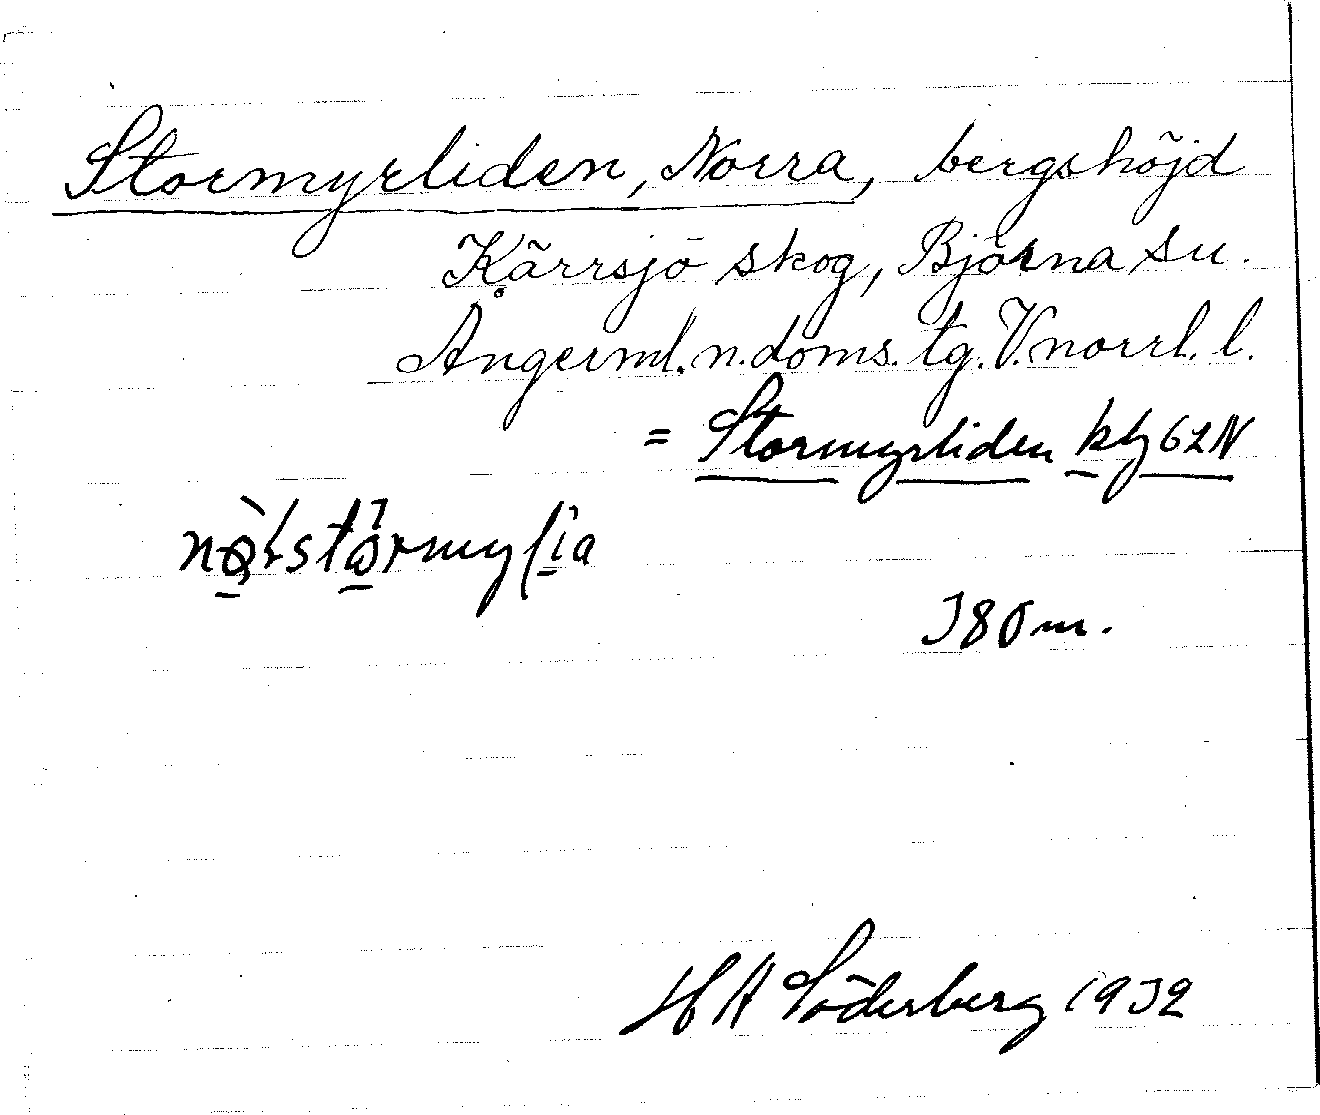 Stormyrliden, Norra, bergshöjd
Kärrsjö skog, Björna sn.
Ångerml. n. doms. tg. V.norrl. l.
= Stormyrliden kbg 62N
380 m.
H A Söderberg 1932